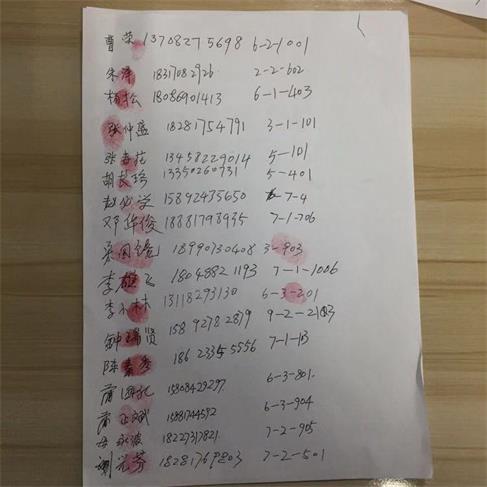 曹荣 13708275698 6-2-1001
朱泽 18317082926 2-2-602
杨松 18086901413 6-1-403
张仲益 18281754791 3-1-101
张春花 13458229014 5-101
胡长珍 13350260731 5-401
赵 15892435650 7-4
邓华俊 18881798935 7-1-706
18990730408 3-903
李雄飞 18048821193 7-1-1006
李小林 13118293130 6-3-201
钟瑞贤 15892782879 9-2-2103
陈素秀 18623355556 7-1-13
蒲 15808429297 6-3-801
蒲正斌 15881744592 6-3-904
18227317821 7-2-905
谢光芬 18281769803 7-2-501